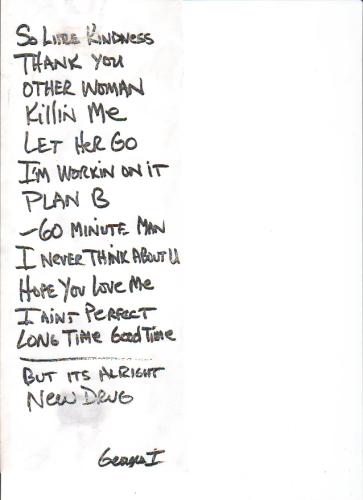 So Little Kindness
THANK YOU
OTHER WOMAN
Killin Me
LET HER GO
I'M WORKIN ON IT
PLAN B
-60 MINUTE MAN
I NEVER THINK ABOUT U
HOPE YOU LOVE ME
I AINT PERFECT
LONG TIME GOOD TIME
BUT ITS ALRIGHT
NEW DRUG